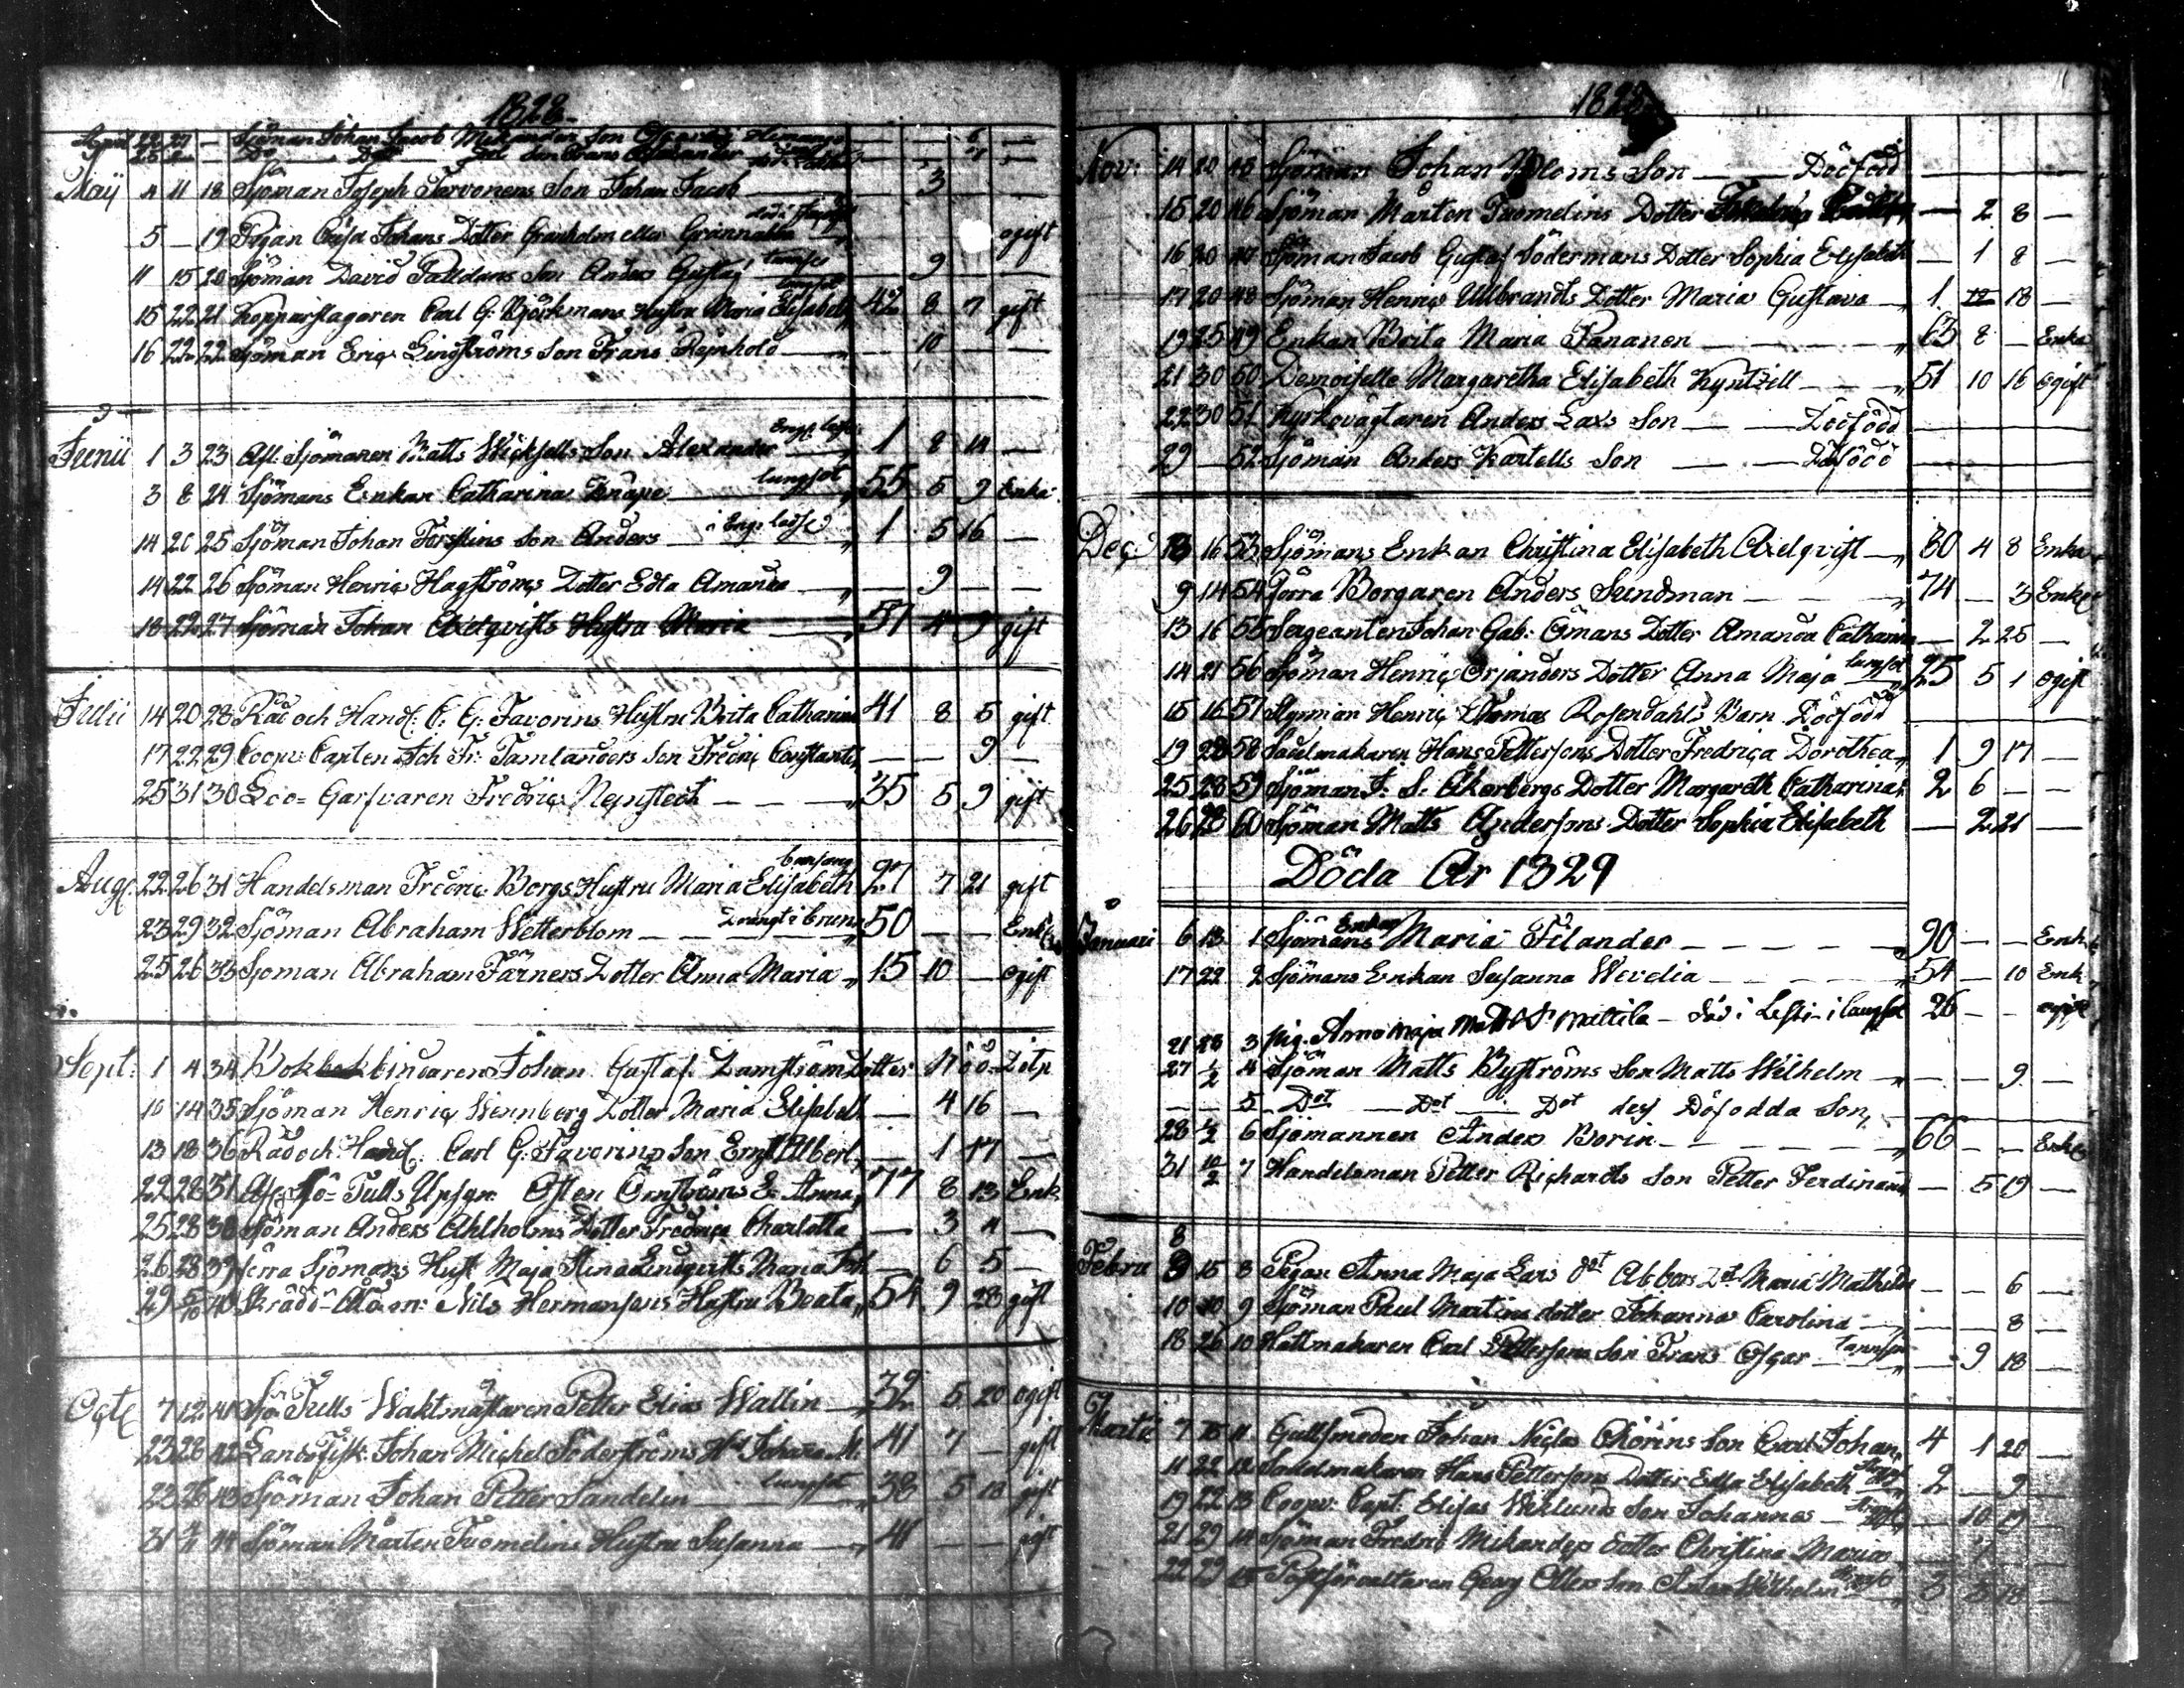 1828
April 22 27 — Sjöman Johan Jacob Mikanders Son — — 6 —
25 — D:o Son Frans — — 7 —
Maij 4 11 18 Sjöman Joseph Tarvonens Son Johan Jacob — 3
5 — 19 Pigan Cajsa Johans Dotter Granholm eller Grannabba ogift
11 15 20 Sjöman David Paldans Son Anders Gustaf — 9 —
lungsot
15 22 21 Kopparslagaren Carl G: Björkmans Hustru Maria Elisabeth 42 8 7 gift
16 22 22 Sjöman Eriç Lindströms Son Frans Rejnhold — 10 —
Junii 1 3 23 Afl. Sjömanen Matts Wicksells Son Alexander 1 8 14 —
3 8 24 Sjömans Enkan Catharina Knape lungsot 55 5 9 Enka
14 20 25 Sjöman Johan Forsslins Son Anders 1 5 16 —
14 22 26 Sjöman Henriç Hagströms Dotter Edla Amanda — 9 —
18 22 27 Sjöman Johan Axelqvists Hustru Maria 51 4 9 gift
Julii 14 20 28 Råd och Handl: C: G: Favorins Hustru Brita Catharina 41 8 5 gift
17 22 29 Coopv: Capten Joh Fr: Tamlanders Son Fredriç Constantin — — 9 —
25 31 30 Löö-Garfvaren Fredriç Nejnstedt — — 35 5 9 gift
barnsäng
Aug: 22 26 31 Handelsman Fredric Borgs Hustru Maria Elisabeth 27 7 21 gift
23 29 32 Sjöman Abraham Wetterblom — 50 — — Enkl
25 26 33 Sjöman Abraham Färners Dotter Anna Maria 15 10 — ogift
Sept: 1 4 34 Bokbindaren Johan Gustaf Damström Dotter Nöd Döp
10 14 35 Sjöman Henriç Wennberg Dotter Maria Elisabeth — 4 16 —
13 18 36 Råd och Handl: Carl G: Favorins Son Ernst Albert — 1 17 —
22 28 37 Sjö-Tulls Upsyn: Östen Örnströms E: Anna 77 8 13 Enk
25 28 38 Sjöman Anders Ahlholms Dotter Fredriça Charlotta — 3 4 —
26 28 39 Förra Sjömans Hust Maja Stina Lindqvists Maria Joh — 6 5 —
29 5/10 40 Skräddare Nils Hermansons Hustru Beata 54 9 28 gift
Octb 7 12 41 Sjö Tulls Waktmästaren Petter Elias Wallin 32 5 20 ogift
23 26 42 Lands Fisk: Johan Michel Söderströms H:u Johanna M. 41 7 — gift
23 26 43 Sjöman Johan Petter Sandelin lungsot 38 5 18 gift
31 44 Sjöman Mårten Tuomelins Hustru Susanna 41 — — gift
1828
Nov: 14 20 45 Sjöman Johan Bloms Son — Dödfödd
15 20 46 Sjöman Mårten Tuomelins Dotter — 2 8 —
16 20 47 Sjöman Jacob Gustaf Södermans Dotter Sophia Elisabeth — 1 8 —
17 20 48 Sjöman Henriç Ullbrandts Dotter Maria Gustava 1 18 —
19 25 49 Enkan Brita Maria Pananen — — 63 8 — Enka
21 30 50 Demoiselle Margaretha Elisabeth Kyntzell — — 51 10 16 ogift
22 30 51 Kyrkovägtaren Anders Lax's Son — Dödfödd
29 — 52 Sjöman Anders Kartells Son — Döfödd
Deç: 13 16 53 Sjömans Enkan Christina Elisabeth Axelqvist 80 4 8 Enka
9 14 54 Förra Borgaren Anders Sundman — — 74 — 3 Enkl
13 16 55 Sergeanten Johan Gab: Ömans Dotter Amanda Catharina — 2 25 —
14 21 56 Sjöman Henriç Örjanders Dotter Anna Maja lungsot 25 5 1 ogift
15 16 57 Henriç Thomas Rosendahls Barn Dödfödd
19 28 58 Sadelmakaren Hans Pettersons Dotter Fredriça Dorothea 1 9 17 —
25 28 59 Sjöman J: S: Åkerbergs Dotter Margareth Catharina 2 6 — —
26 28 60 Sjöman Matts Andersons Dotter Sophia Elisabeth — 2 21 —
Döda År 1829
Januari 6 13 1 Sjömans Enkan Maria Filander — — 90 — — Enk
17 22 2 Sjömans Enkan Susanna Wevelia — — 54 — 10 Enk
21 28 3 pig. Anna Maja Matts dr Mattila — död i Lesti — i lungsot 26 — — ogift
27 1/2 4 Sjöman Matts Byströms Son Matts Wilhelm — — 9 —
— — 5 D:ot — D:ot — D:ot des Döfodda Son
28 1/2 6 Sjömannen Anders Borin — — 66 — — Enkl
31 10/2 7 Handelsman Petter Richards Son Petter Ferdinand — 5 19 —
8
Febru 9 15 8 Pigan Anna Maja Lars d:ot Abbors D:ot Maria Mathilda — — 6
10 10 9 Sjöman Paul Martins dotter Johanna Carolina — — 8 —
18 26 10 Hattmakaren Carl Pettersons Son Frans Osçar — 9 18 —
Martii 7 15 11 Gullsmeden Johan Niclas Chorins Son Carl Johan 4 1 20 —
11 22 12 Sadelmakaren Hans Pettersons Dotter Edla Elisabeth 2 — 9 —
19 22 13 Coopv: Capt: Elisas Weklunds Son Johannes — 10 19 —
21 29 14 Sjöman Fredric Mikanders Dotter Christina Maria
22 29 15 Postförvaltaren Georg Ollers Son Wilhelm 3 18 —